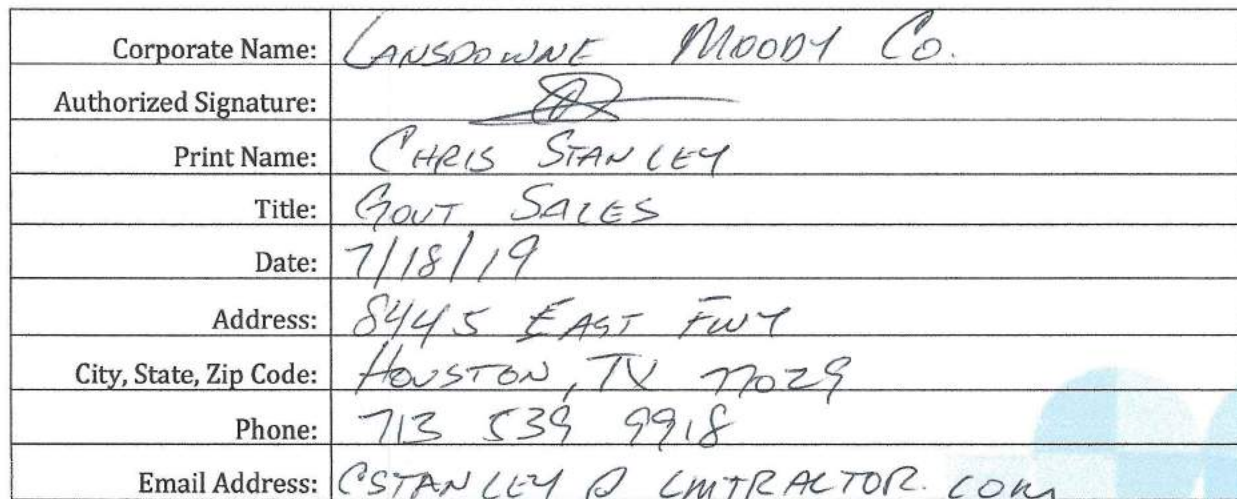 Corporate Name: LANSDOWNE MOODY CO.
Authorized Signature:
Print Name: CHRIS STANLEY
Title: GOVT SALES
Date: 7/18/19
Address: 8445 EAST FWY
City, State, Zip Code: HOUSTON, TX 77029
Phone: 713 539 9918
Email Address: CSTANLEY @ LMTRACTOR.COM